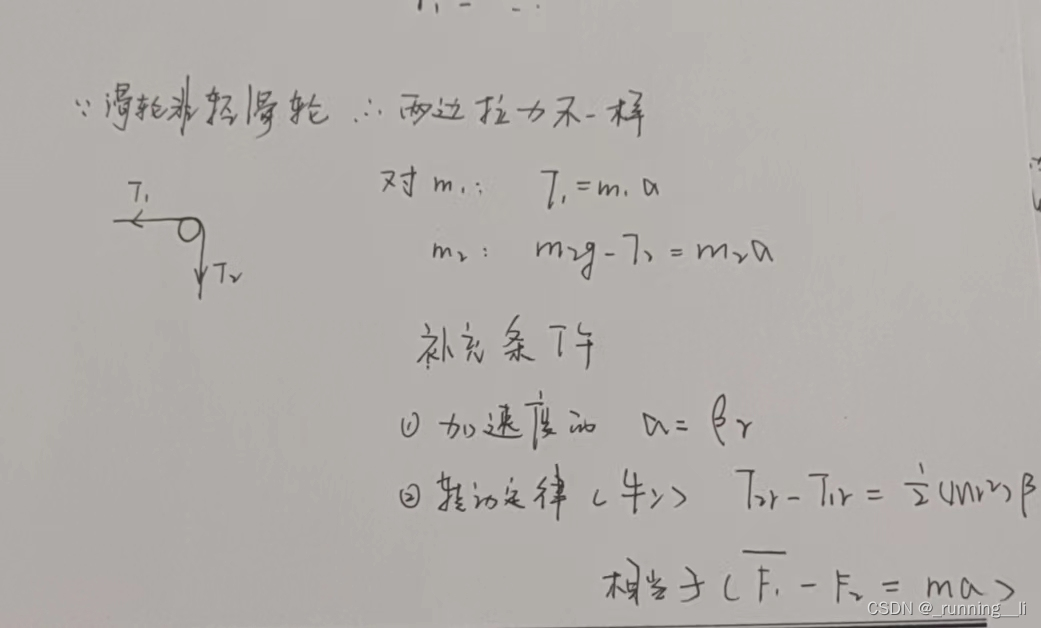 ∵滑轮非轻滑轮 ∴两边拉力不一样
T₁
T₂
对 m₁: T₁=m₁a
m₂: m₂g-T₂=m₂a
补充条件
① 加速度 a=βr
② 转动定律(牛二) T₂r-T₁r=½(mr²)β
相当于(F₁-F₂=ma)
CSDN @_running__li